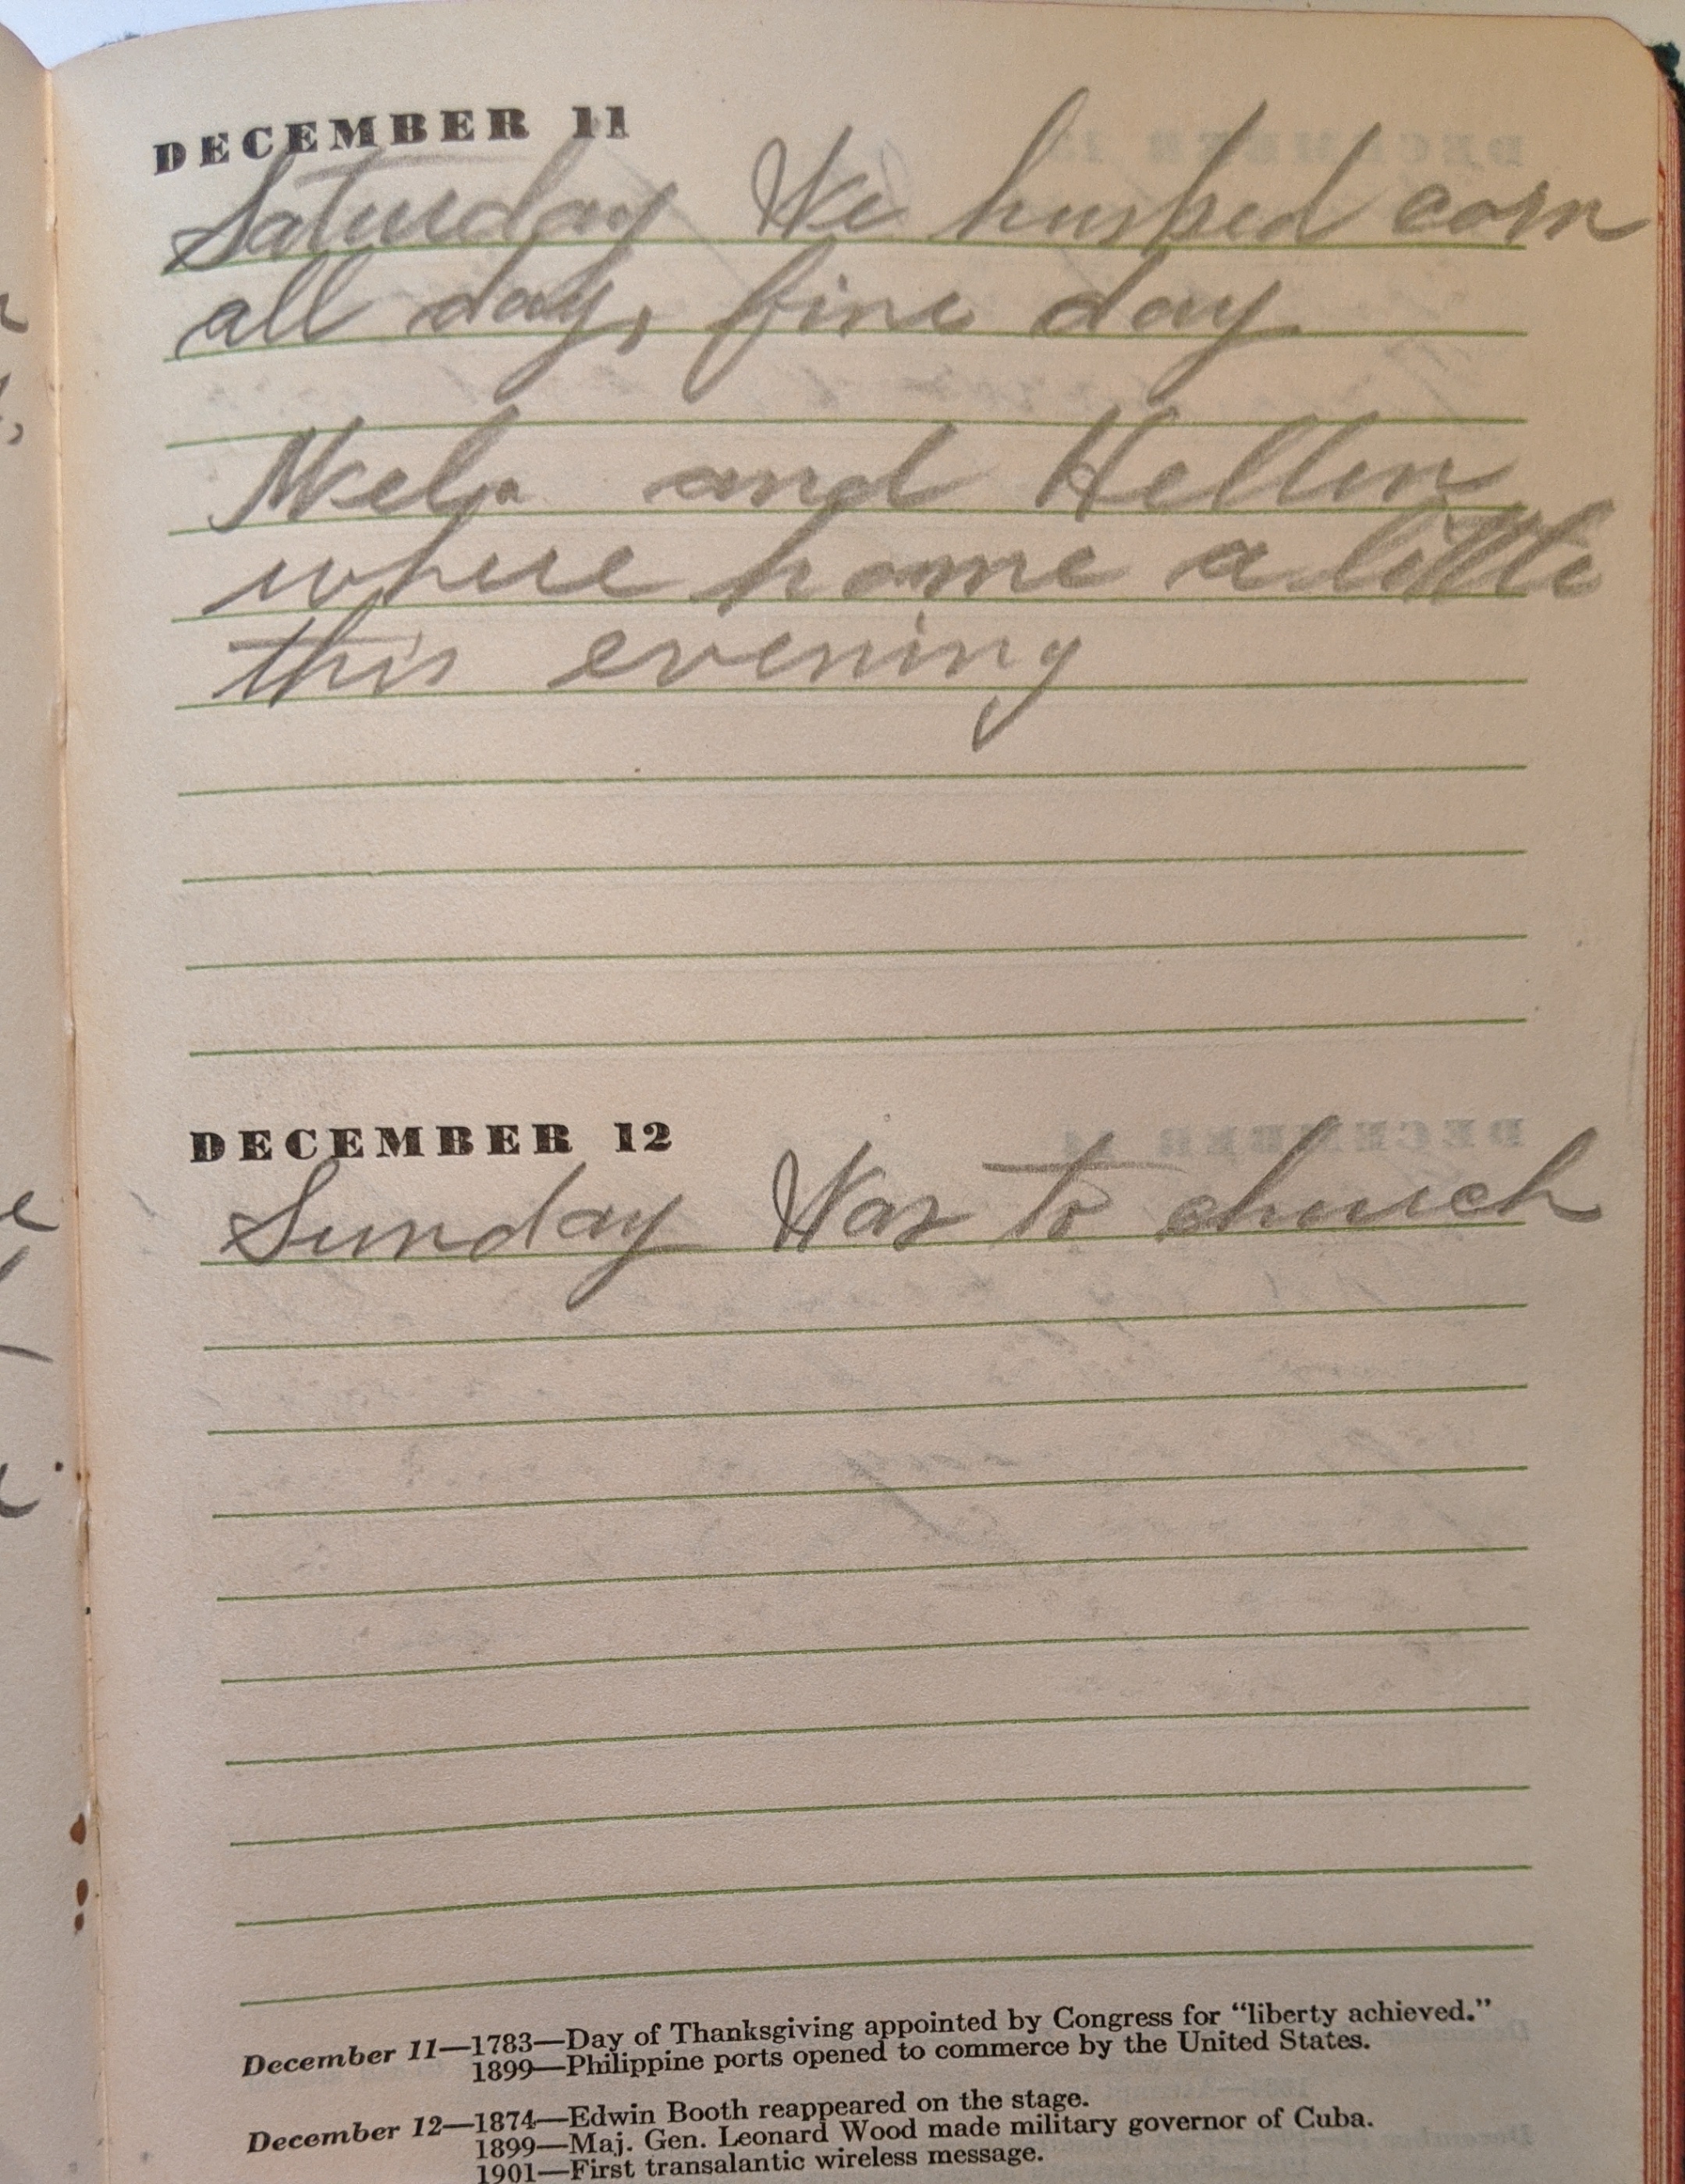 DECEMBER 11
Saturday We husked corn
all day, fine day.
and Hellen
where home a little
this evening
DECEMBER 12
Sunday Was to church
December 11—1783—Day of Thanksgiving appointed by Congress for “liberty achieved.”
1899—Philippine ports opened to commerce by the United States.
December 12—1874—Edwin Booth reappeared on the stage.
1899—Maj. Gen. Leonard Wood made military governor of Cuba.
1901—First transalantic wireless message.